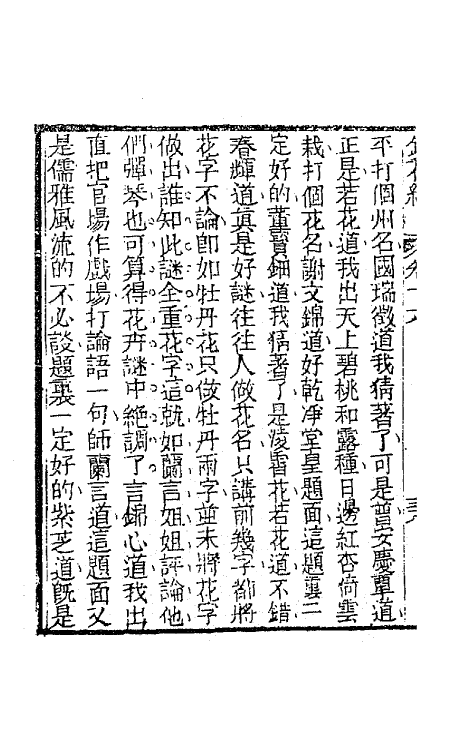 平打個州名國瑞徵道我猜著了可是普安慶覃道
正是若花道我出天上碧桃和露種日邊紅杏倚雲
栽打個花名謝文錦道好乾凈堂皇題面這題裏一
定好的董寶鈿道我猜著了是凌霄花若花道不錯
春輝道眞是好謎往往人做花名只講前幾字都將
花字不論卽如牡丹花只做牡丹兩字並未將花字
做出誰知此謎全重花字這就如蘭言姐姐評論他
們彈琴也可算得花卉謎中絶調了言錦心道我出
直把官場作戲場打論語一句師蘭言道這題面又
是儒雅風流的不必談題裏一定好的紫芝道旣是